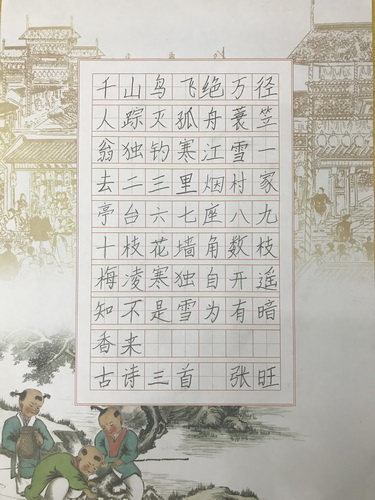 千山鸟飞绝万径
人踪灭孤舟蓑笠
翁独钓寒江雪一
去二三里烟村家
亭台六七座八九
十枝花墙角数枝
梅凌寒独自开遥
知不是雪为有暗
香来
古诗三首 张旺